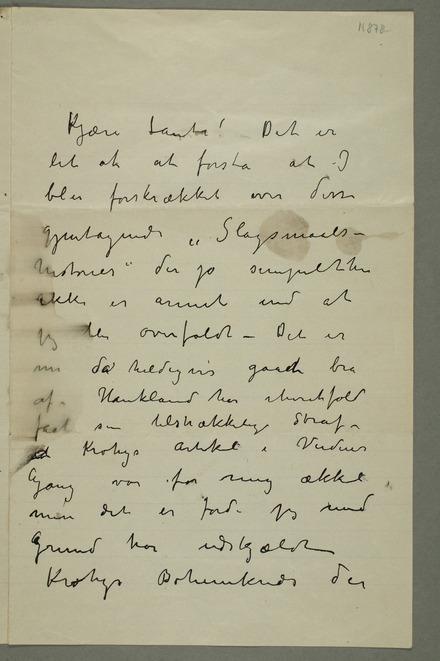 N 878
Kjære tante! Det er
let at forstå at I
blev forskrækket over disse
gjentagende „Slagsmaals-
historier" der jo simpelthen
ikke er annet end at
jeg blev overfaldt – Det er
nu da heldigvis gaaet bra
af. Haukland har ihvertfald
faat sin tilstrækkelige Straf –
Krohgs artikel i Verdens
Gang var for mig ækkel
men det er fordi jeg med
Grund har udskjældt
Krohgs Bohemkreds der